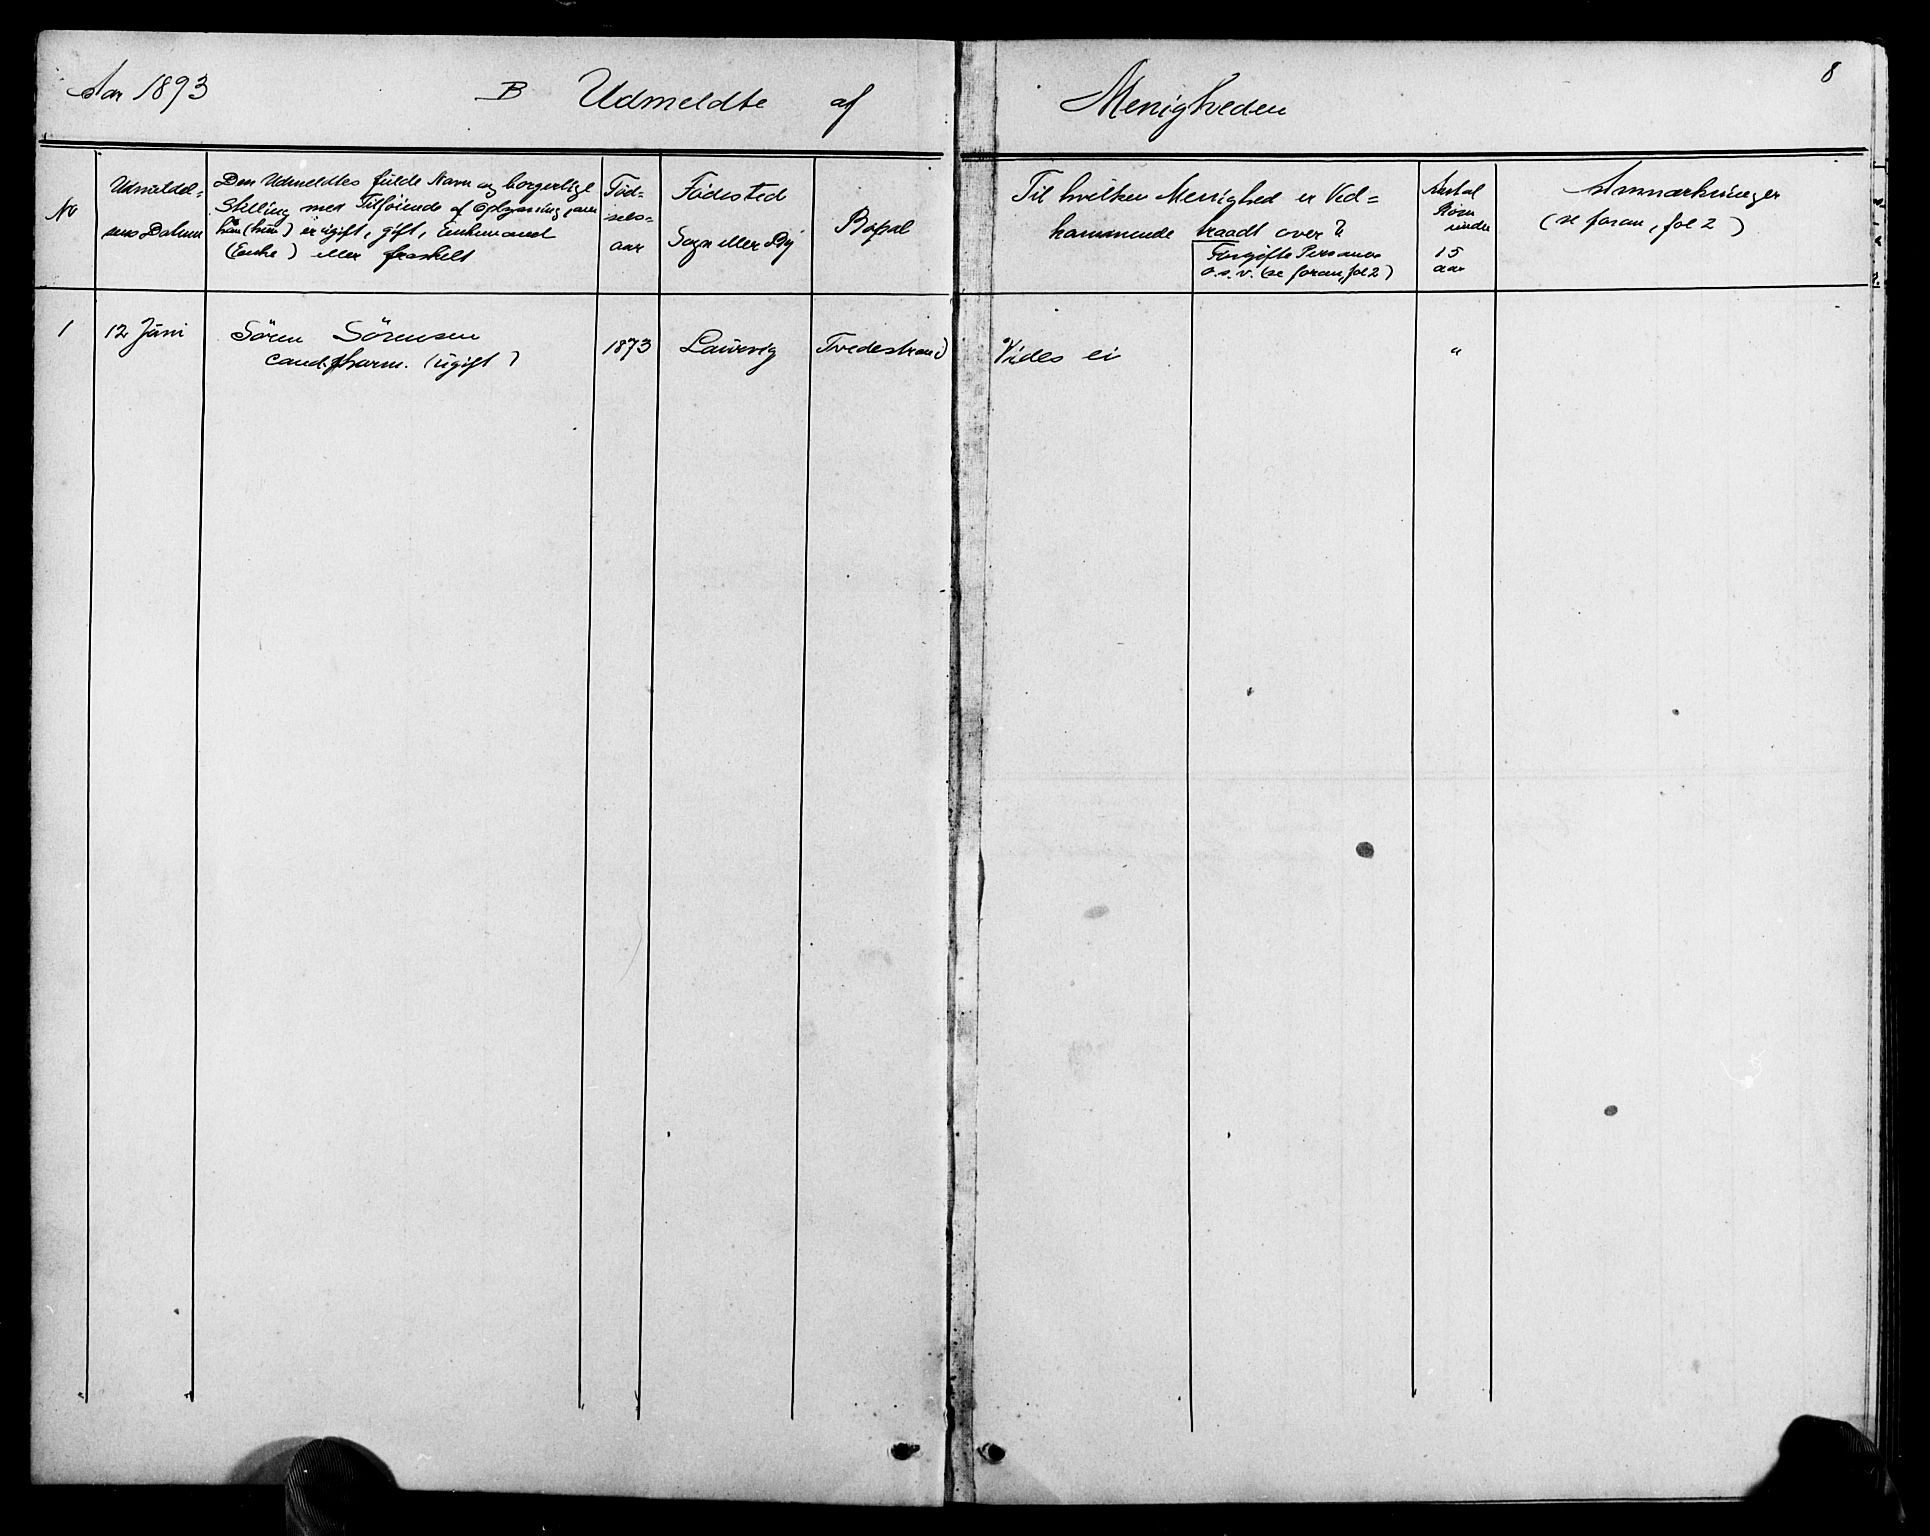 Aar 1893 B Udmeldte af Menigheden 8
No
Udmeldel-
sens Datum
Den Udmeldtes fulde Navn og borgerlige
Stilling med Tilføiende af Oplysning, om
han (hun) er ugift, gift, Enkemand
(Enke) eller fraskilt
Fød-
sels-
aar
Fødested
Sogn eller By
Bopæl
Til hvilken Menighed er Ved-
kommende traadt over?
For gifte Personer
o.s.v. (se foran, fol 2)
Antal
Børn
under
15
aar
Anmærkninger
(se foran, fol 2)
1
12 Juni
Sören Sörensen
cand. pharm. (ugift)
1873
Laurvig
Tvedestrand
Vides ei
"